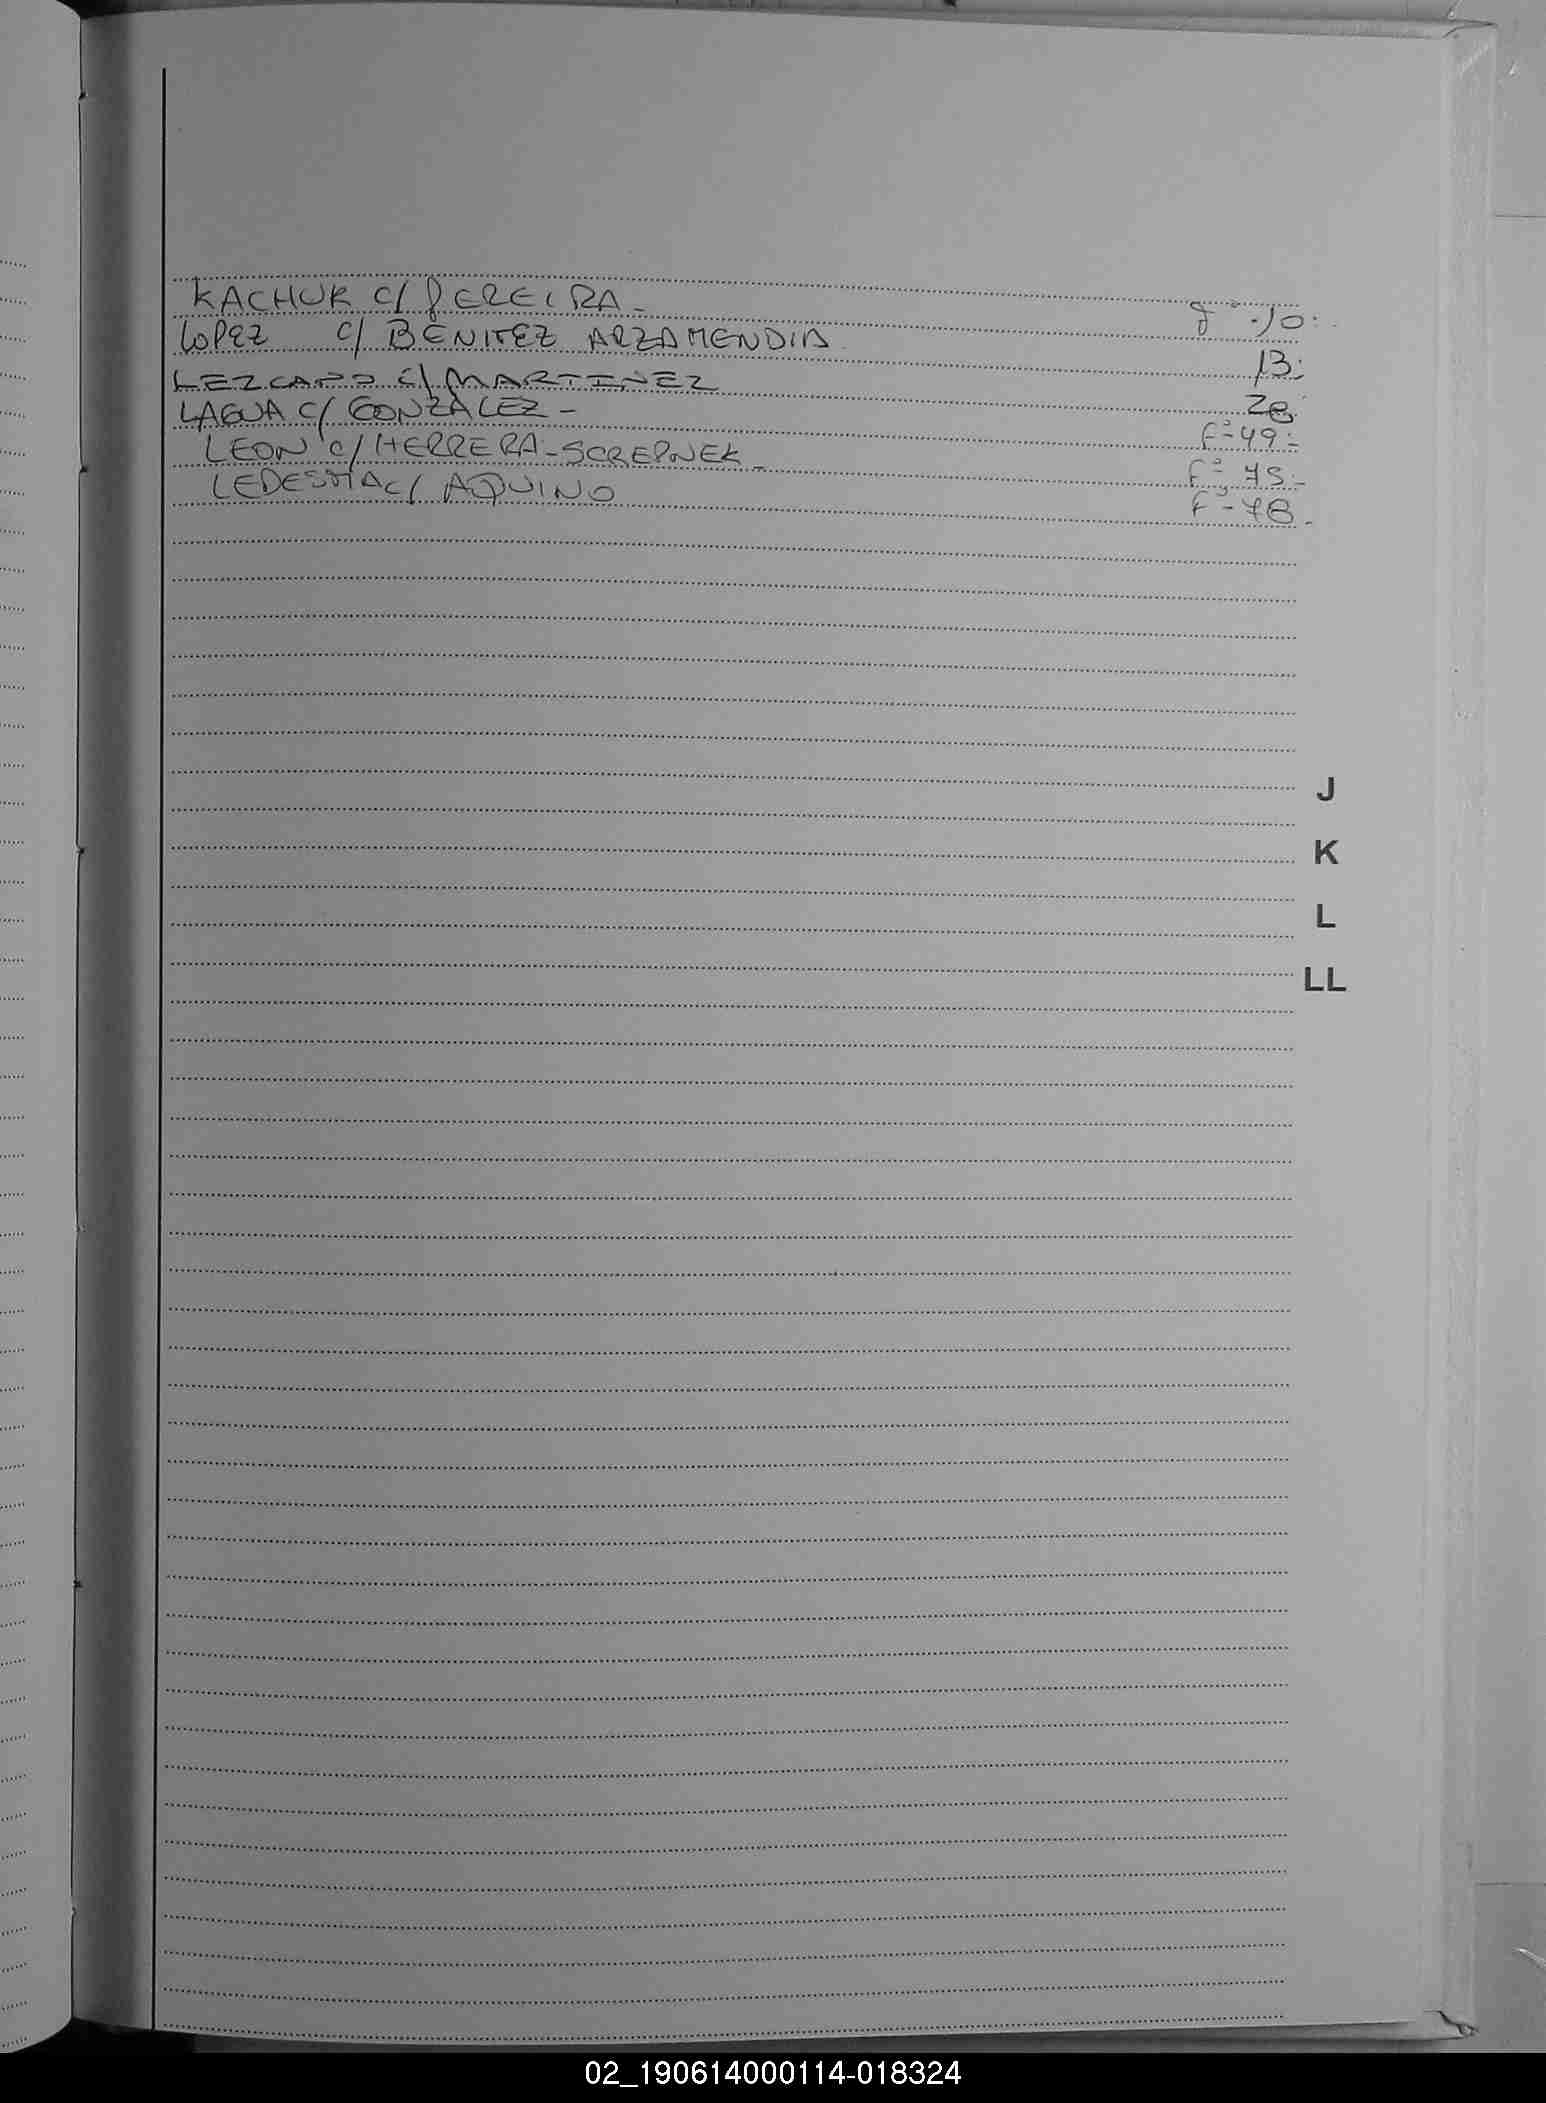 KACHUR C/ PEREIRA - Fº.10.
LOPEZ C/ BENITEZ ARZAMENDIA 13.
LEZCANO C/ MARTINEZ 28.
LAGUA C/ GONZALEZ - Fº 49.-
LEON C/ HERRERA-SCREPNEK - Fº 75.-
LEDESMA C/ AQUINO Fº 78.-
J
K
L
LL
02_190614000114-018324